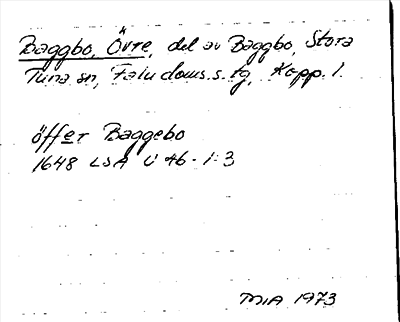 Baggbo, Övre, del av Baggbo, Stora
Tuna sn, Falu doms. s. tg, Kopp. l.
öffer Baggebo
1648 LSA U 46 · 1:3
MIA 1973